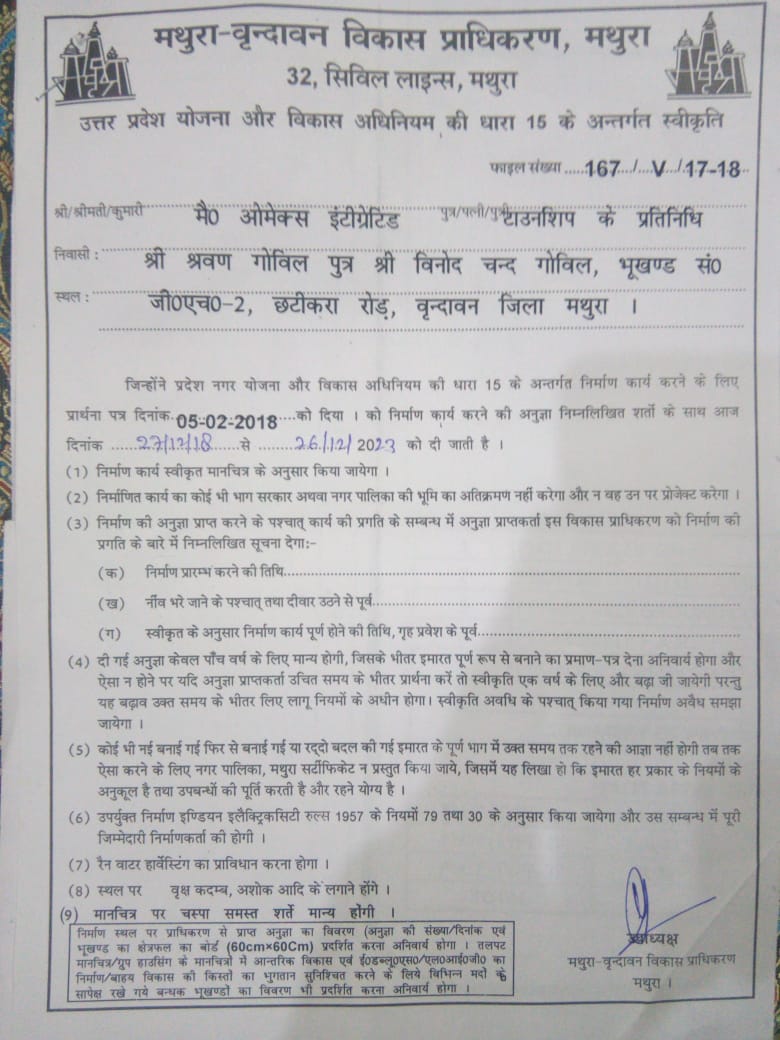 मथुरा-वृन्दावन विकास प्राधिकरण, मथुरा
32, सिविल लाइन्स, मथुरा
उत्तर प्रदेश योजना और विकास अधिनियम की धारा 15 के अन्तर्गत स्वीकृति
फाइल संख्या .....167../...V../17-18..
श्री/श्रीमती/कुमारी मै0 ओमेक्स इंटीग्रेटिड पुत्र/पत्नी/पुत्री टाउनशिप के प्रतिनिधि
निवासी : श्री श्रवण गोविल पुत्र श्री विनोद चन्द गोविल, भूखण्ड सं0
स्थल : जी0एच0-2, छटीकरा रोड़, वृन्दावन जिला मथुरा ।
जिन्होंने प्रदेश नगर योजना और विकास अधिनियम की धारा 15 के अन्तर्गत निर्माण कार्य करने के लिए
प्रार्थना पत्र दिनांक 05-02-2018 को दिया । को निर्माण कार्य करने की अनुज्ञा निम्नलिखित शर्तो के साथ आज
दिनांक 27/12/18 से 26/12/ 2023 को दी जाती है ।
(1) निर्माण कार्य स्वीकृत मानचित्र के अनुसार किया जायेगा ।
(2) निर्माणित कार्य का कोई भी भाग सरकार अथवा नगर पालिका की भूमि का अतिक्रमण नहीं करेगा और न वह उन पर प्रोजेक्ट करेगा ।
(3) निर्माण की अनुज्ञा प्राप्त करने के पश्चात् कार्य की प्रगति के सम्बन्ध में अनुज्ञा प्राप्तकर्ता इस विकास प्राधिकरण को निर्माण की
प्रगति के बारे में निम्नलिखित सूचना देगा:-
(क) निर्माण प्रारम्भ करने की तिथि
(ख) नींव भरे जाने के पश्चात् तथा दीवार उठने से पूर्व
(ग) स्वीकृत के अनुसार निर्माण कार्य पूर्ण होने की तिथि, गृह प्रवेश के पूर्व
(4) दी गई अनुज्ञा केवल पाँच वर्ष के लिए मान्य होगी, जिसके भीतर इमारत पूर्ण रूप से बनाने का प्रमाण-पत्र देना अनिवार्य होगा और
ऐसा न होने पर यदि अनुज्ञा प्राप्तकर्ता उचित समय के भीतर प्रार्थना करें तो स्वीकृति एक वर्ष के लिए और बढ़ा जी जायेगी परन्तु
यह बढ़ाव उक्त समय के भीतर लिए लागू नियमों के अधीन होगा। स्वीकृति अवधि के पश्चात् किया गया निर्माण अवैध समझा
जायेगा ।
(5) कोई भी नई बनाई गई फिर से बनाई गई या रद्दो बदल की गई इमारत के पूर्ण भाग में उक्त समय तक रहने की आज्ञा नहीं होगी तब तक
ऐसा करने के लिए नगर पालिका, मथुरा सर्टीफिकेट न प्रस्तुत किया जाये, जिसमें यह लिखा हो कि इमारत हर प्रकार के नियमों के
अनुकूल है तथा उपबन्धों की पूर्ति करती है और रहने योग्य है ।
(6) उपर्युक्त निर्माण इण्डियन इलैक्ट्रिकसिटी रुल्स 1957 के नियमों 79 तथा 30 के अनुसार किया जायेगा और उस सम्बन्ध में पूरी
जिम्मेदारी निर्माणकर्ता की होगी ।
(7) रैन वाटर हार्वेस्टिंग का प्राविधान करना होगा ।
(8) स्थल पर वृक्ष कदम्ब, अशोक आदि के लगाने होंगे ।
(9) मानचित्र पर चस्पा समस्त शर्ते मान्य होंगी ।
निर्माण स्थल पर प्राधिकरण से प्राप्त अनुज्ञा का विवरण (अनुज्ञा की संख्या/दिनांक एवं
भूखण्ड का क्षेत्रफल का बोर्ड (60cm×60Cm) प्रदर्शित करना अनिवार्य होगा । तलपट
मानचित्र/ग्रुप हाउसिंग के मानचित्रों में आन्तरिक विकास एवं ई0डब्लू0एस0/एल0आई0जी0 का
निर्माण/बाहय विकास की किस्तों का भुगतान सुनिश्चित करने के लिये विभिन्न मदों के
सापेक्ष रखे गये बन्धक भूखण्डों का विवरण भी प्रदर्शित करना अनिवार्य होगा ।
उपाध्यक्ष
मथुरा-वृन्दावन विकास प्राधिकरण
मथुरा ।